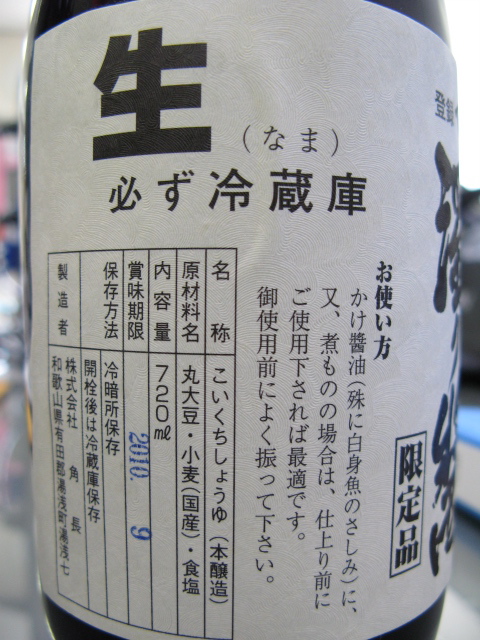 生
(なま)
必ず冷蔵庫
登録
限定品
お使い方
かけ醬油(殊に白身魚のさしみ)に、
又、煮ものの場合は、仕上り前に
ご使用下されば最適です。
御使用前によく振って下さい。
名称 こいくちしょうゆ(本醸造)
原材料名 丸大豆・小麦(国産)・食塩
内容量 720㎖
賞味期限 2010. 9
保存方法 冷暗所保存
開栓後は冷蔵庫保存
製造者 株式会社 角長
和歌山県有田郡湯浅町湯浅七